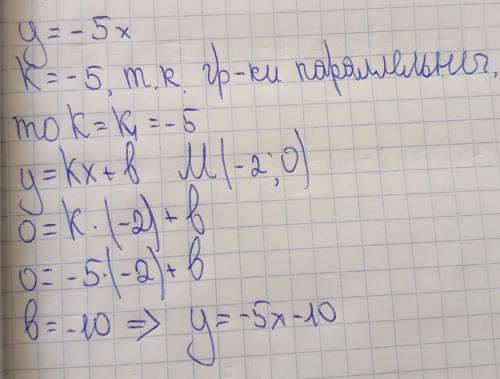 y = -5x
K = -5, т.к. гр-ки параллельны,
то K = K₁ = -5
y = Kx + в   M(-2; 0)
0 = K · (-2) + в
0 = -5 · (-2) + в
в = -10 => y = -5x - 10